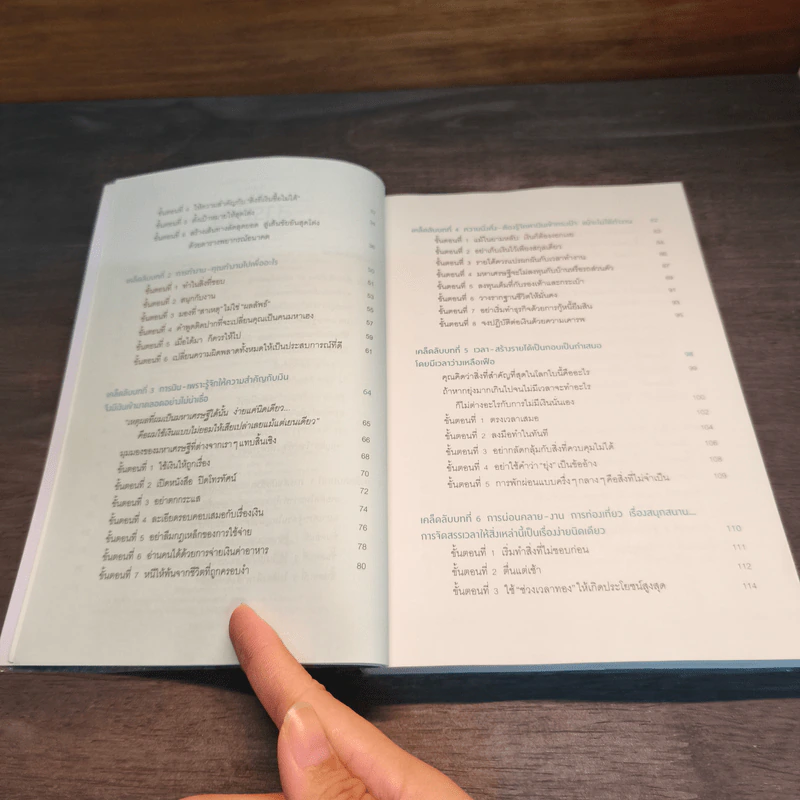 ขั้นตอนที่ 4 ให้ความสำคัญกับ "สิ่งที่เงินซื้อไม่ได้"
ขั้นตอนที่ 5 ตั้งเป้าหมายให้สุดโต่ง
ขั้นตอนที่ 6 สร้างเส้นทางลัดสุดยอด สู่เส้นชัยอันสุดโต่ง
ด้วยตารางพยากรณ์อนาคต
เคล็ดลับบทที่ 2 การทำงาน-คุณทำงานไปเพื่ออะไร 50
ขั้นตอนที่ 1 ทำในสิ่งที่ชอบ 51
ขั้นตอนที่ 2 สนุกกับงาน 53
ขั้นตอนที่ 3 มองที่ "สาเหตุ" ไม่ใช่ "ผลลัพธ์" 55
ขั้นตอนที่ 4 คำพูดติดปากที่จะเปลี่ยนคุณเป็นคนมหาเฮง 57
ขั้นตอนที่ 5 เมื่อได้มา ก็ควรให้ไป 59
ขั้นตอนที่ 6 เปลี่ยนความผิดพลาดทั้งหมดให้เป็นประสบการณ์ที่ดี 61
เคล็ดลับบทที่ 3 การเงิน-เพราะรู้จักให้ความสำคัญกับเงิน
ไม่น่าเชื่อ 64
"เหตุผลที่ผมเป็นมหาเศรษฐีได้นั้น ง่ายแค่นิดเดียว... 65
คือผมใช้เงินแบบไม่ยอมให้เสียเปล่าเลยแม้แต่เยนเดียว" 66
มุมมองของมหาเศรษฐีที่ต่างจากเราๆ แทบสิ้นเชิง 68
ขั้นตอนที่ 1 ใช้เงินให้ถูกเรื่อง 70
ขั้นตอนที่ 2 เปิดหนังสือ ปิดโทรทัศน์ 72
ขั้นตอนที่ 3 อย่าตกกระแส 74
ขั้นตอนที่ 4 ละเอียดรอบคอบเสมอกับเรื่องเงิน 76
ขั้นตอนที่ 5 อย่าลืมกฎเหล็กของการใช้จ่าย 78
ขั้นตอนที่ 6 อ่านคนได้ด้วยการจ่ายเงินค่าอาหาร 80
ขั้นตอนที่ 7 หนีให้พ้นจากชีวิตที่ถูกครอบงำ
เคล็ดลับบทที่ 4 ความมั่งคั่ง
ขั้นตอนที่ 1 แม้ในยามหลับ เงินก็ต้องงอกเงย
ขั้นตอนที่ 2 อย่าเก็บเงินไว้เพียงสกุลเดียว
ขั้นตอนที่ 3 รายได้ควรแปรผกผันกับเวลาทำงาน
ขั้นตอนที่ 4 มหาเศรษฐีจะไม่ลงทุนกับบ้านหรือรถส่วนตัว
ขั้นตอนที่ 5 ลงทุนเต็มที่กับรองเท้าและกระเป๋า
ขั้นตอนที่ 6 วางรากฐานชีวิตให้มั่นคง
ขั้นตอนที่ 7 อย่าเริ่มทำธุรกิจด้วยการกู้หนี้ยืมสิน
ขั้นตอนที่ 8 จงปฏิบัติต่อเงินด้วยความเคารพ 95
เคล็ดลับบทที่ 5 เวลา-สร้างรายได้เป็นกอบเป็นกำเสมอ
โดยมีเวลาว่างเหลือเฟือ 98
คุณคิดว่าสิ่งที่สำคัญที่สุดในโลกใบนี้คืออะไร 99
ถ้าหากยุ่งมากเกินไปจนไม่มีเวลาจะทำอะไร
ก็ไม่ต่างอะไรกับการไม่มีเงินนั่นเอง 100
ขั้นตอนที่ 1 ตรงเวลาเสมอ 102
ขั้นตอนที่ 2 ลงมือทำในทันที 104
ขั้นตอนที่ 3 อย่ากลัดกลุ้มกับสิ่งที่ควบคุมไม่ได้ 106
ขั้นตอนที่ 4 อย่าใช้คำว่า "ยุ่ง" เป็นข้ออ้าง 108
ขั้นตอนที่ 5 การพักผ่อนแบบครึ่งๆ กลางๆ คือสิ่งที่ไม่จำเป็น 109
เคล็ดลับบทที่ 6 การผ่อนคลาย-งาน การท่องเที่ยว เรื่องสนุกสนาน...
การจัดสรรเวลาให้สิ่งเหล่านี้เป็นเรื่องง่ายนิดเดียว 110
ขั้นตอนที่ 1 เริ่มทำสิ่งที่ไม่ชอบก่อน 111
ขั้นตอนที่ 2 ตื่นแต่เช้า 112
ขั้นตอนที่ 3 ใช้ "ช่วงเวลาทอง" ให้เกิดประโยชน์สูงสุด 114